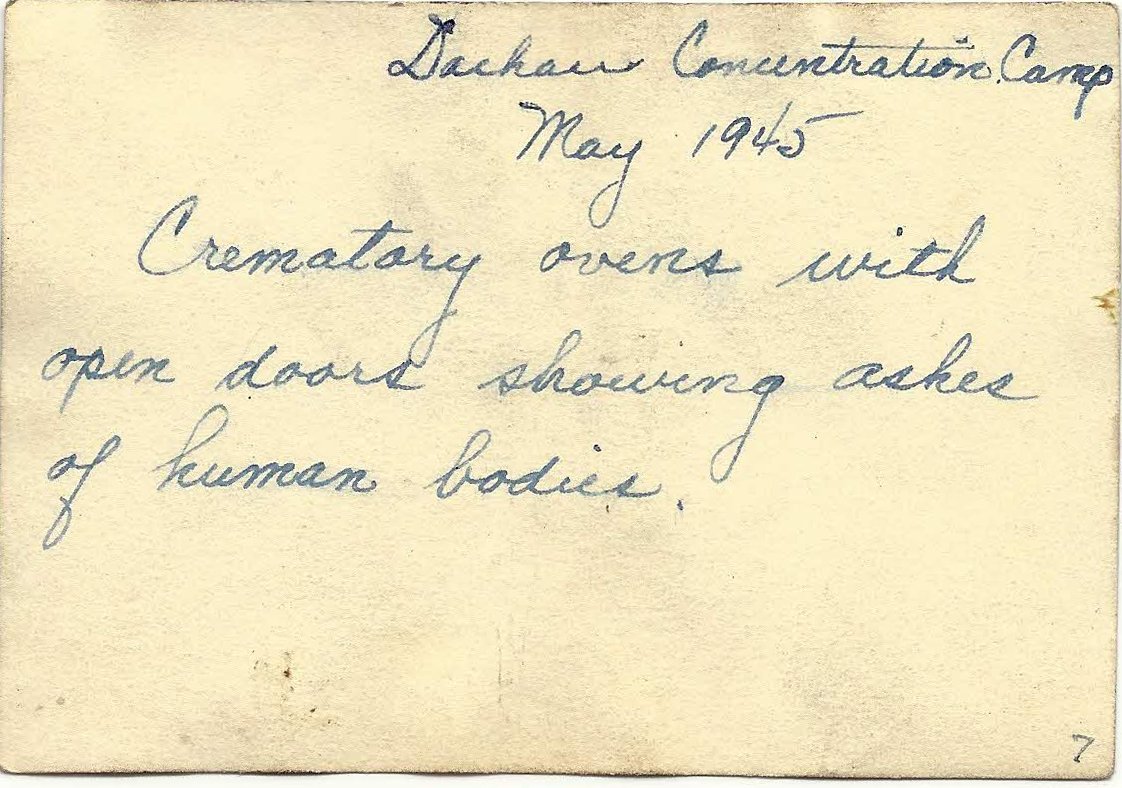 Dachau Concentration Camp
May 1945
Crematory ovens with
open doors showing ashes
of human bodies.
7